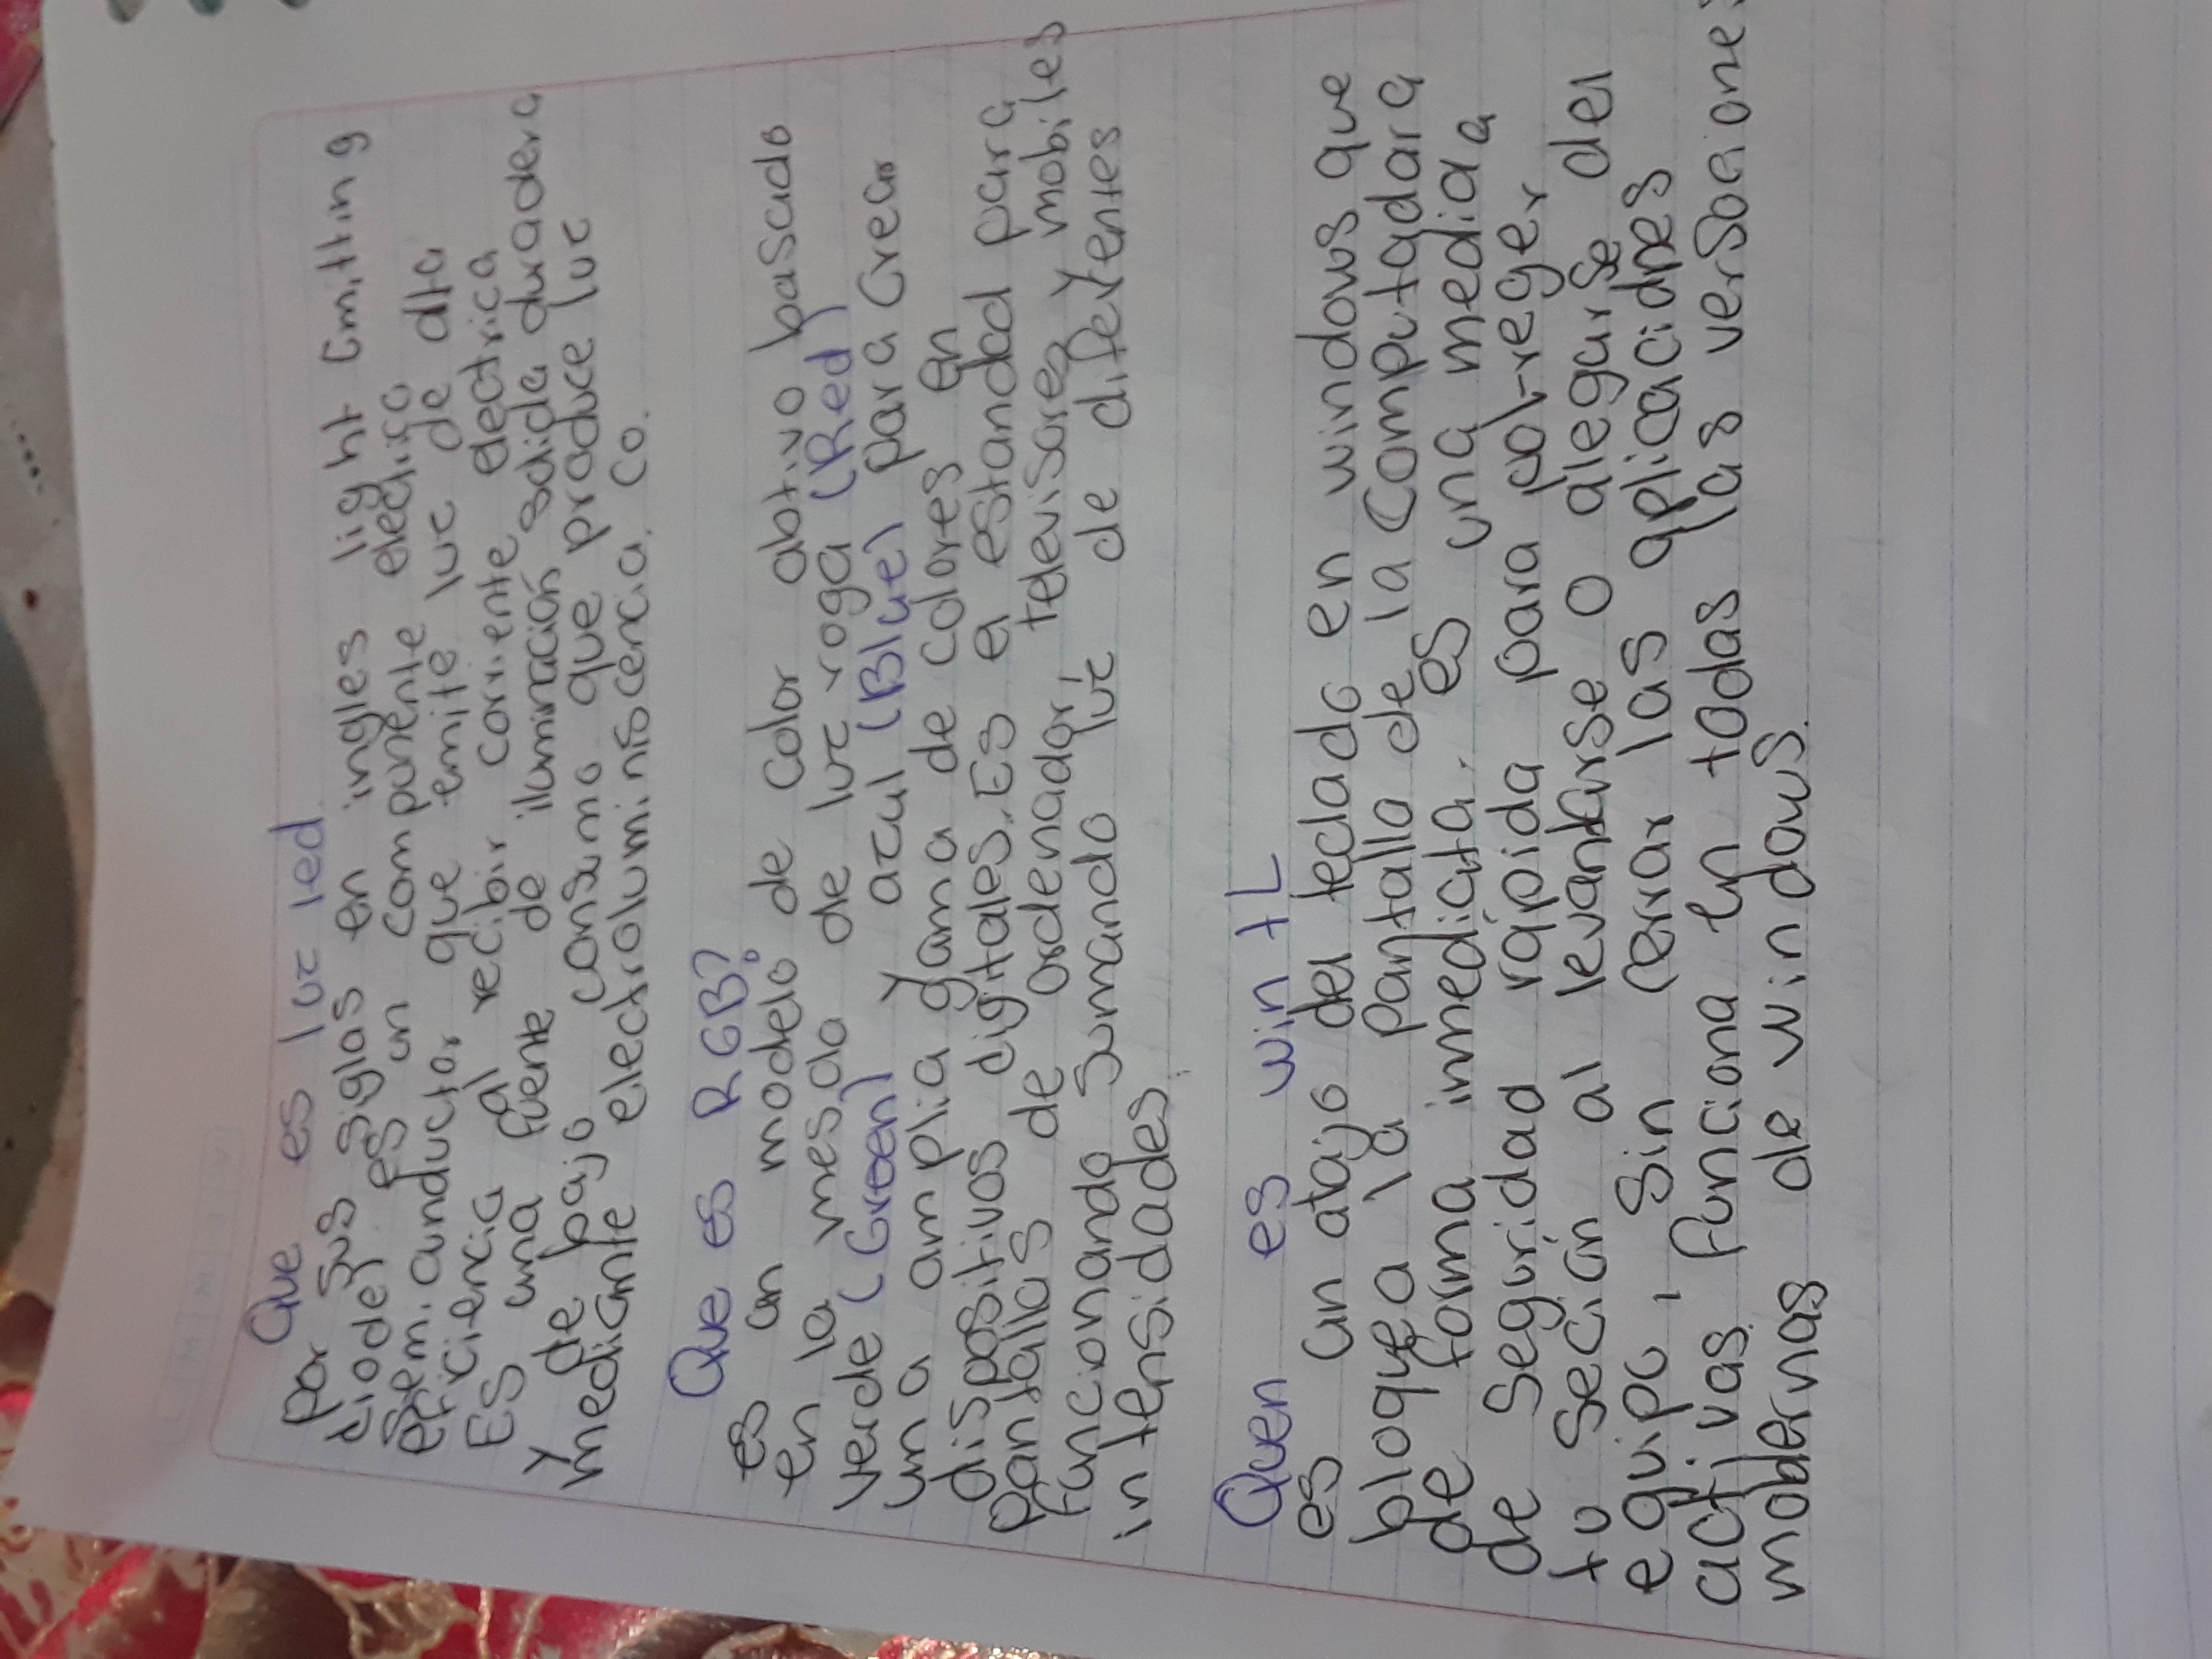 Que es luz led
por sus siglas en ingles light Emitting
diode) es un componente electrico
semiconductor que emite luz de alta
eficiencia al recibir corriente electrica
Es una fuente de iluminación solida duradera
y de bajo consumo que produce luz
mediante electroluminiscencia. Co.
Que es RGB?
es un modelo de color abtivo basado
en la mescla de luz roga (Red)
verde (Green) y azul (Blue) para crear
una amplia gama de colores en
dispositivos digitales. Es el estandad para
Pantallas de ordenador, televisores y mobiles
Funcionando sumando luz de diferentes
intensidades.
Quen es win + L
es un atajo del teclado en windows que
bloquea la pantalla de la Computadara
de forma inmediata. es una media
de seguridad rápida para potreger
tu Seción al levantarse o alegarse del
equipo, Sin cerrar las aplicaciones
activas. funciona en todas las versiones
modernas de windows.